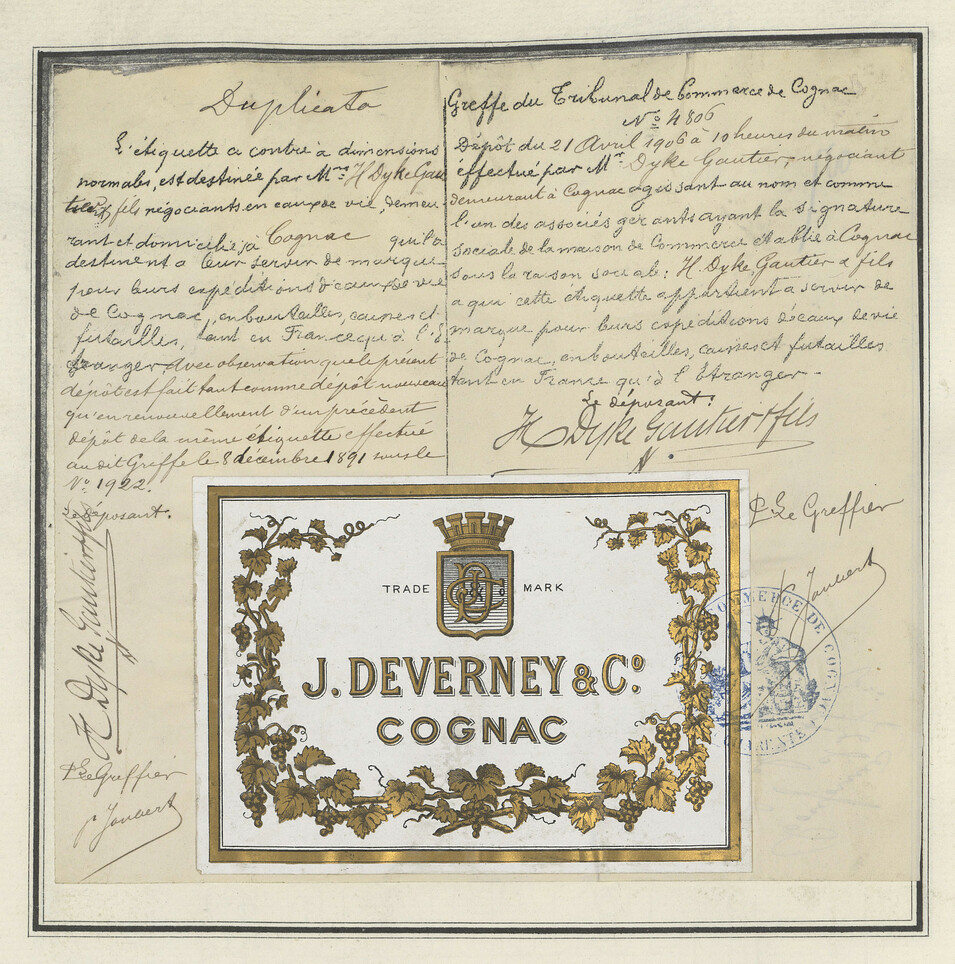 Duplicata
L'étiquette ci contre à dimensions
normales, est destinée par Mrs H Dyke Gau
tier & fils négociants en eaux de vie, demeu
rant et domiciliés à Cognac qui la
destinent à leur servir de marque
pour leurs expéditions d'eaux de vie
de Cognac, en bouteilles, caisses et
futailles, tant en France qu'à l'é
tranger. Avec observation que le présent
dépôt est fait tant comme dépôt nouveau
qu'en renouvellement d'un précédent
dépôt de la même étiquette effectué
au dit Greffe le 8 décembre 1891 sous le
No. 1922.
Le déposant.
H Dyke Gautier & fils
P. Le Greffier
Joubert
Greffe du Tribunal de Commerce de Cognac
No 4806
Dépôt du 21 Avril 1906 à 10 heures du matin
effectué par Mr. Dyke Gautier, négociant
demeurant à Cognac agissant au nom et comme
l'un des associés gérants ayant la signature
sociale de la maison de Commerce établie à Cognac
sous la raison sociale: H. Dyke, Gautier & fils
à qui cette étiquette appartient à servir de
marque pour leurs expéditions d'eaux de vie
de Cognac, en bouteilles, caisses et futailles
tant en France qu'à l'Etranger.
Le déposant:
H Dyke Gautier & fils
P. Le Greffier
Joubert
TRADE MARK
J. DEVERNEY & Co.
COGNAC
COMMERCE DE COGNAC
CHARENTE